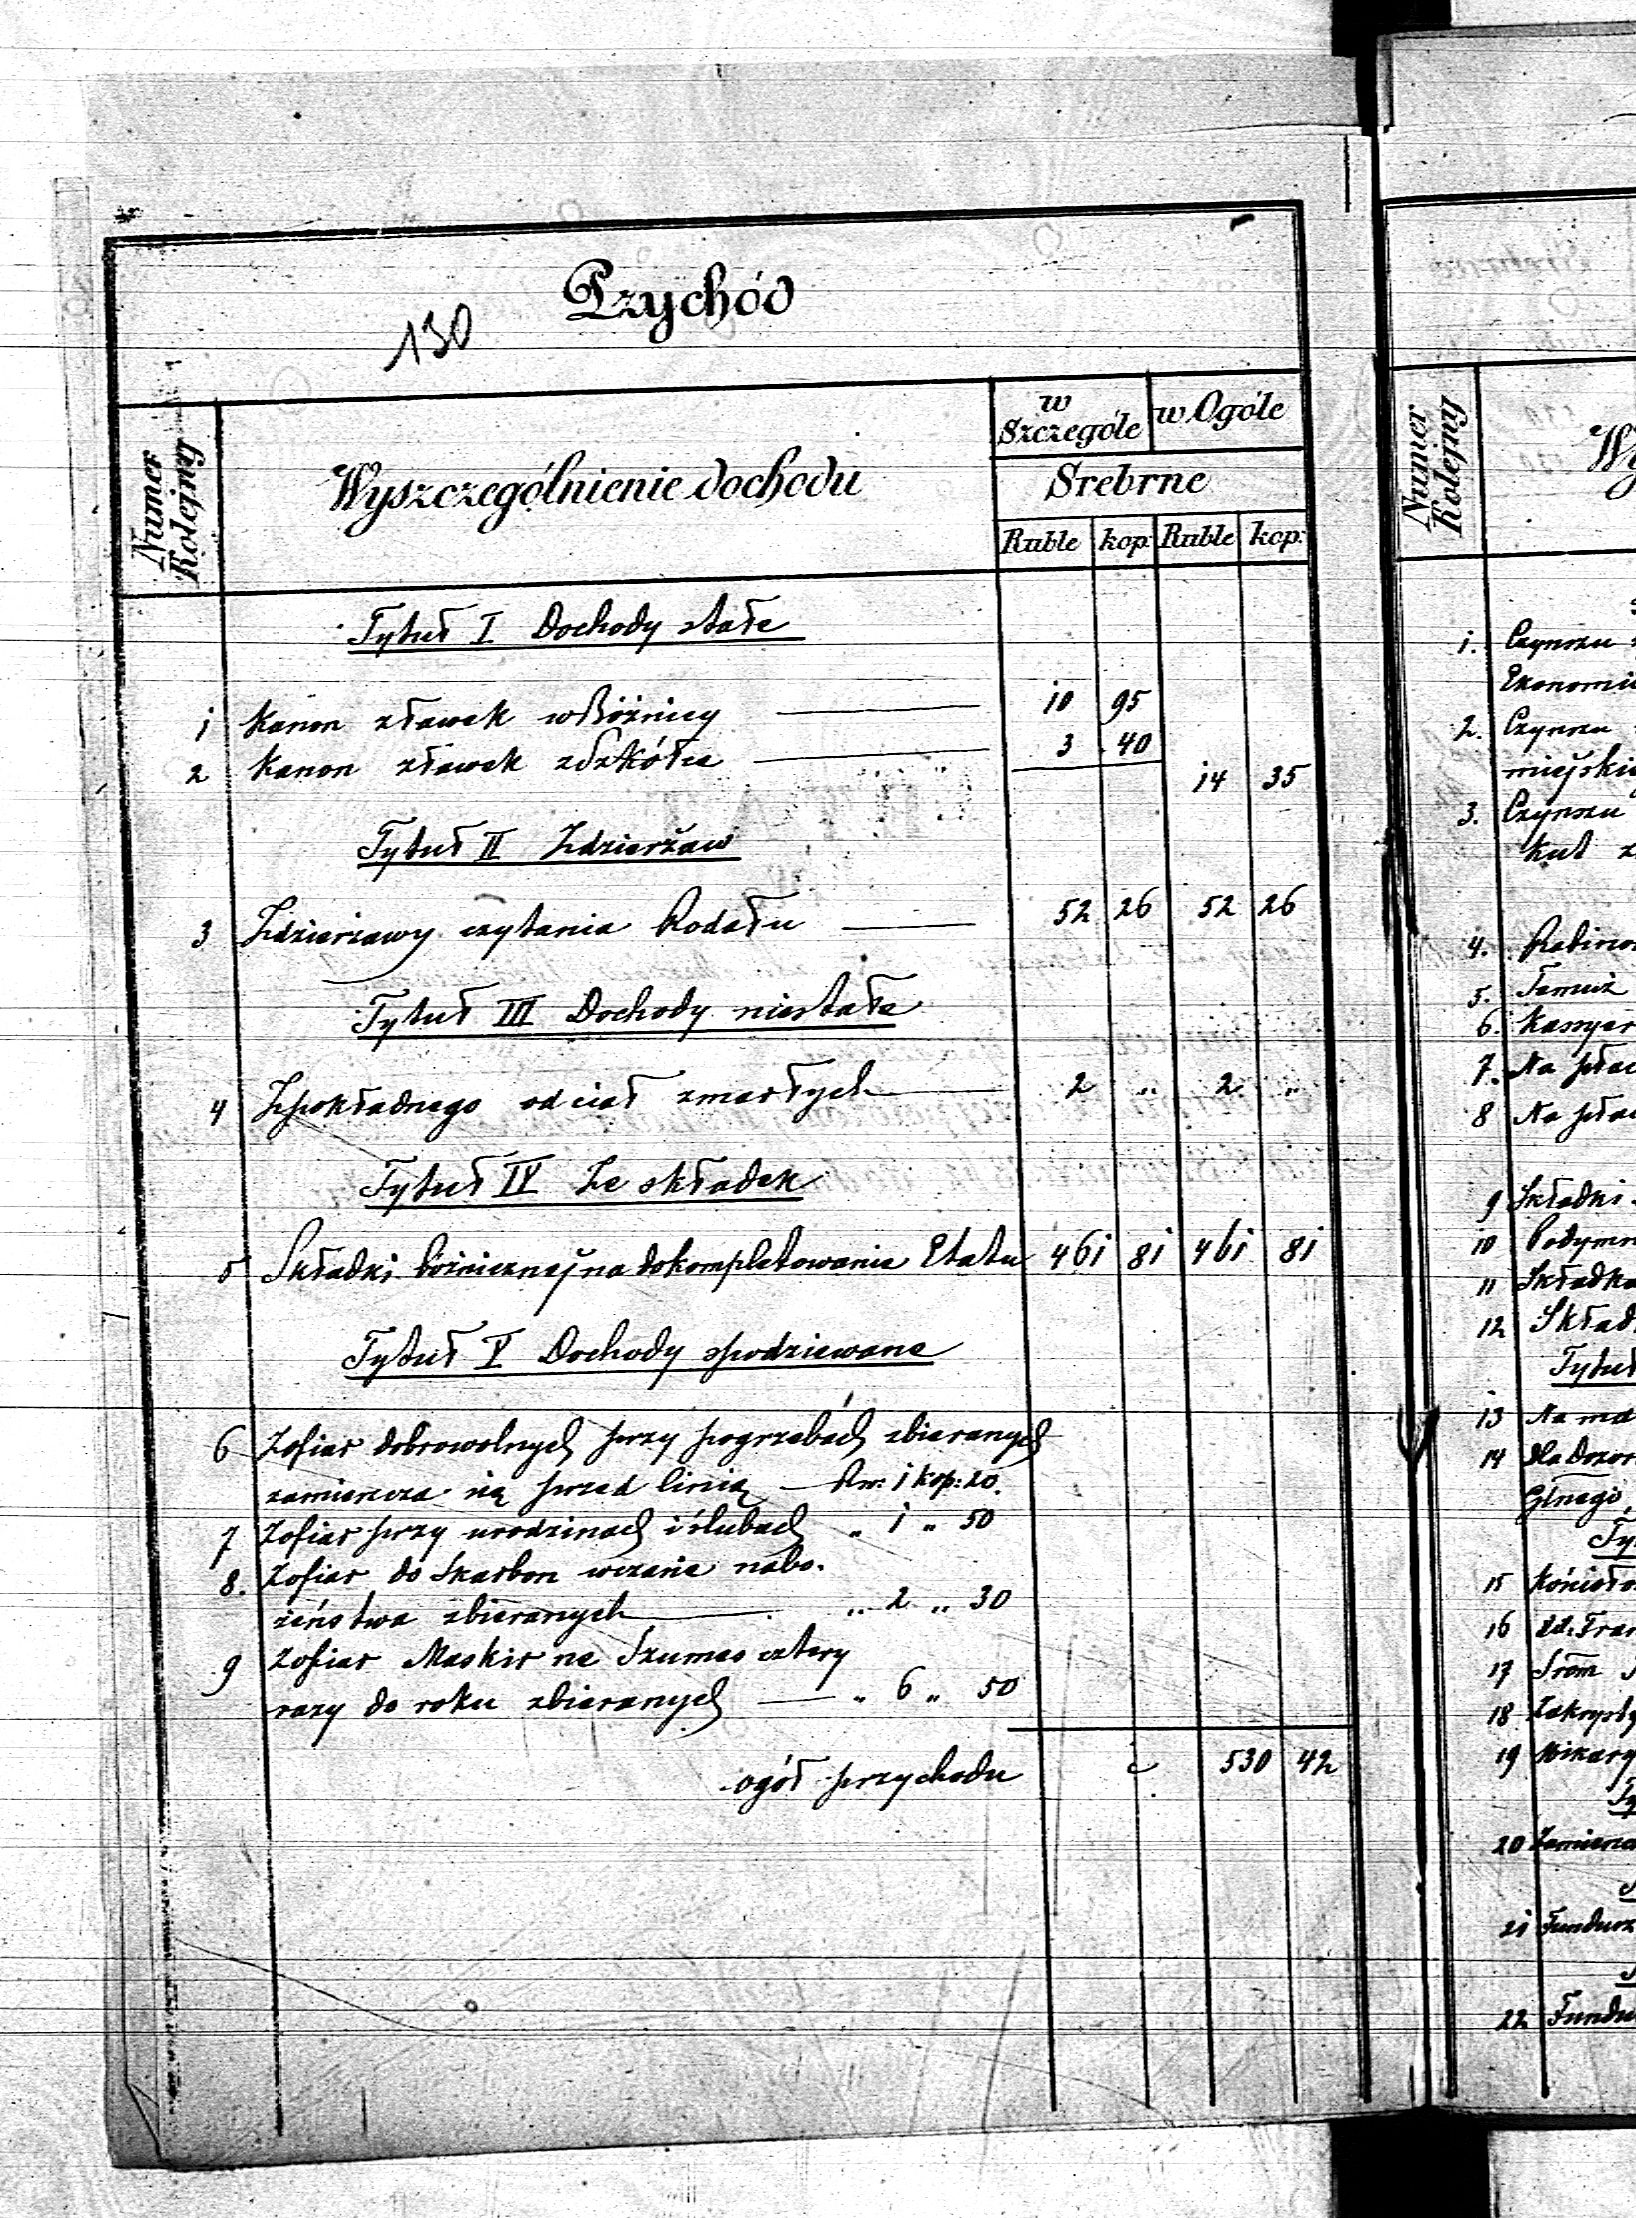 Przychód
130
Numer Kolejny
Wyszczególnienie dochodu
w Szczególe
w Ogóle
Srebrne
Ruble kop: Ruble kop:
Tytuł I Dochody stałe
1 Kanon zławek w Bóźnicy 10 95
2 Kanon zławek zdzkółce 3 40
14 35
Tytuł II Zdzierżaw
3 Zdzierzawy czytania Rodału 52 26 52 26
Tytuł III Dochody niestałe
4 Zpokładnego od ciał zmarłych 2 " 2 "
Tytuł IV Ze składek
5 Składki bóźnicznej na dokompletowanie Etatu 461 81 461 81
Tytuł V Dochody spodziewane
6 Zofiar dobrowolnych przy pogrzebach zbieranych
zamieszcza się przed linią Rsr: 1 kop: 20.
7 Zofiar przy urodzinach i ślubach " 1 " 50
8. Zofiar do Skarbon wczasie nabo-
żeństwa zbieranych " 2 " 30
9 Zofiar Maskir na Szumes cztery
razy do roku zbieranych " 6 " 50
ogół przychodu 530 42
Numer Kolejny
Wy
1. Czynszu
Ekonomic
2. Czynszu
miejski
3. Czynszu
kut z
4. Rabino
5.
6. Kassyer
7. Na płac
8 Na płac
9 Składki
10 Podymn
11 Składka
12 Skład
Tytuł
13
14 Dla Dozor
Ty
15
16
17
18 Zakrysty
19 Wikary
20
21 Fundusz
22 Fundu